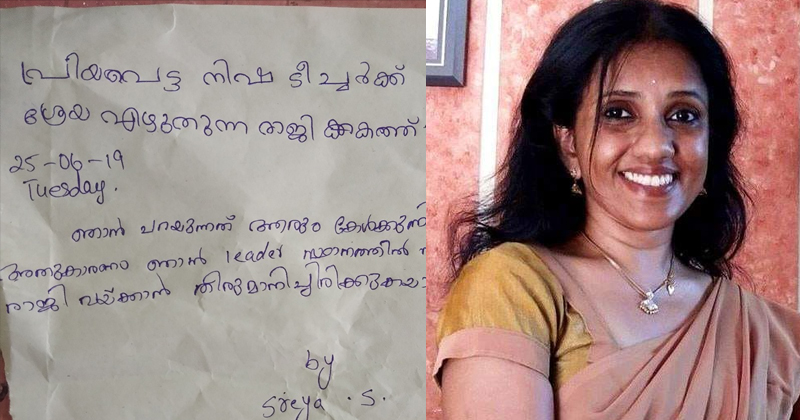 പ്രിയപെട്ട നിഷ ടീച്ചർക്ക്
ശ്രേയ എഴുതുന്ന രാജി ക്കത്ത്
25-06-19
Tuesday.
ഞാൻ പറയുന്നത് ആരും കേൾക്കുന്നി
അതുകാരണം ഞാൻ leader സ്ഥാനത്തിൽ
രാജി വയ്ക്കാൻ തിരുമാനിച്ചിരിക്കുകയാ
by
Sreya . S.